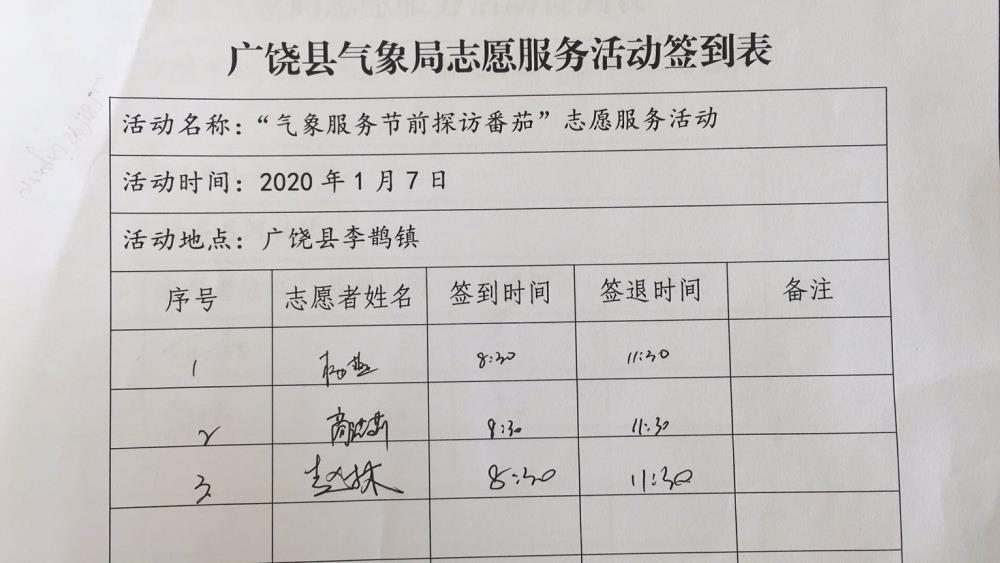 广饶县气象局志愿服务活动签到表
活动名称：“气象服务节前探访番茄”志愿服务活动
活动时间：2020 年 1 月 7 日
活动地点：广饶县李鹊镇
序号 志愿者姓名 签到时间 签退时间 备注
1 8:30 11:30
2 8:30 11:30
3 赵林 8:30 11:30